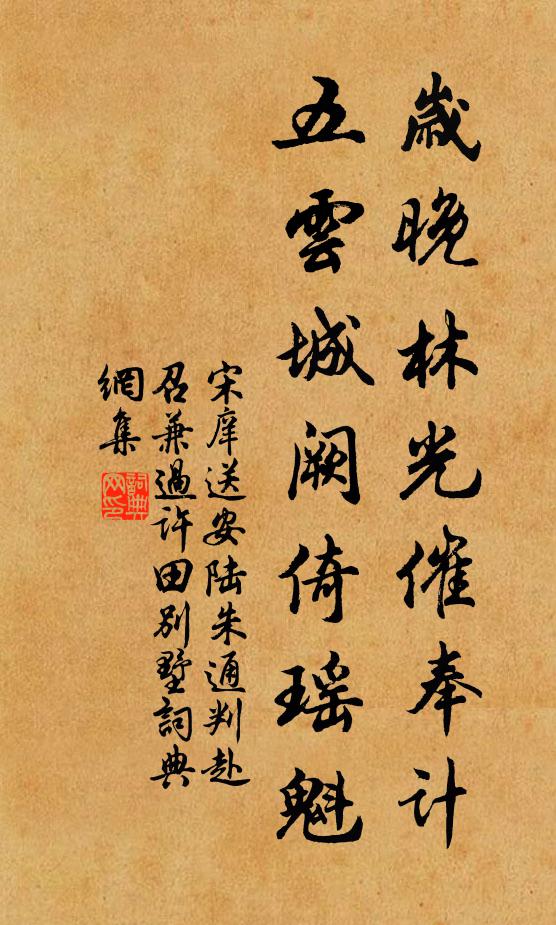 歲晚林光催奉計
五雲城阙倚瑶魁
宋庠送安陆朱通判赴
召兼過许田别墅詞典
網集
詞典网印